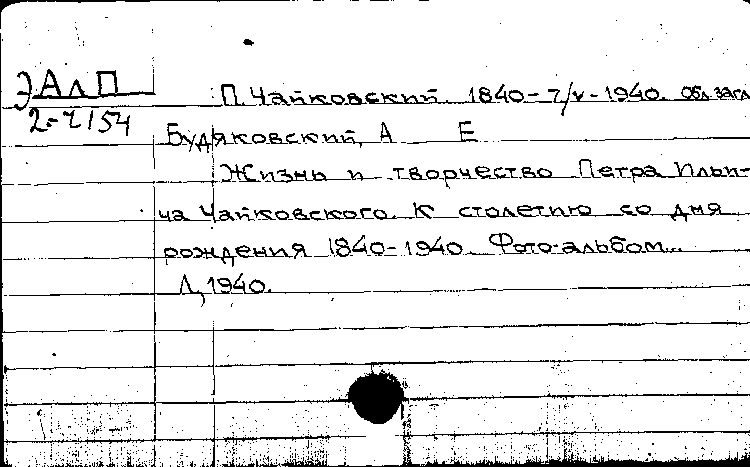 ЭАлП
2-2/154
П. Чайковский. 1840-7/V-1940. Обл. загл.
Будяковский, А Е
Жизнь и творчество Петра Ильи-
ча Чайковского. К столетию со дня
рождения 1840-1940. Фото-альбом...
Л, 1940.